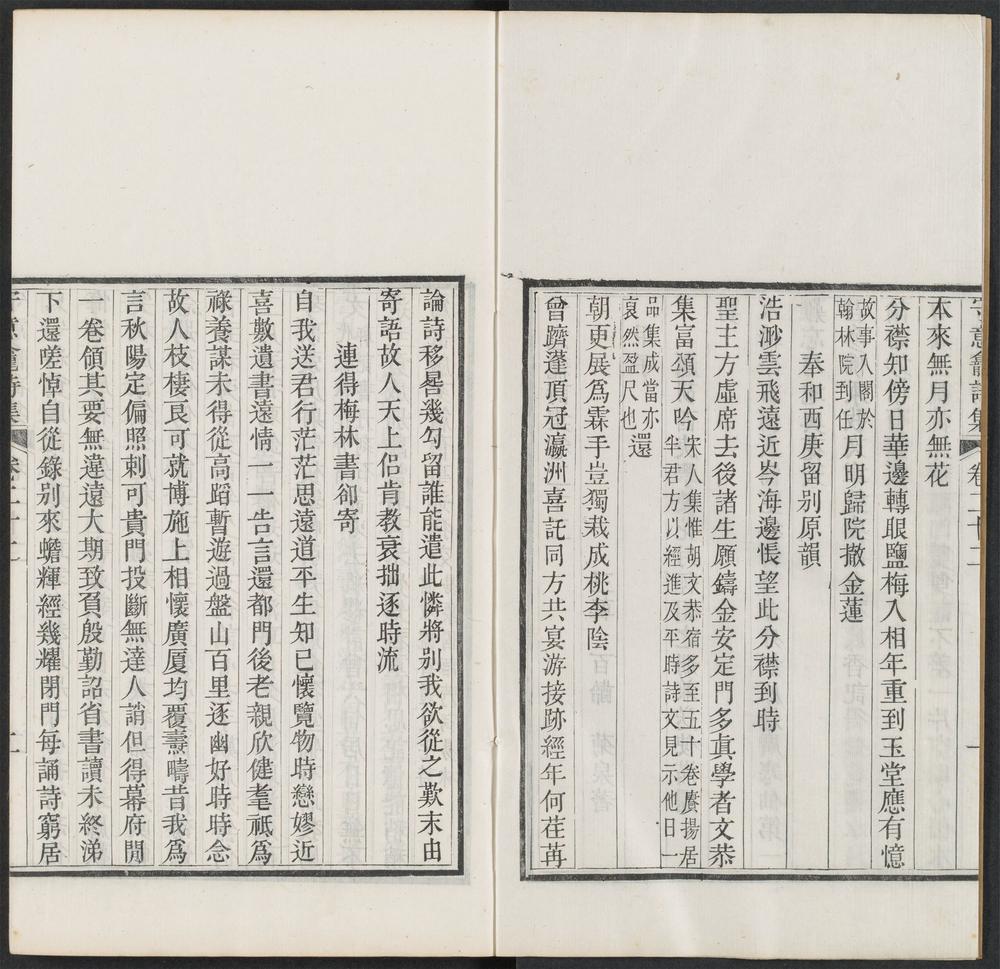 守意龕詩集 卷二十二 一
本來無月亦無花
分襟知傍日華邊轉眼鹽梅入相年重到玉堂應有憶
故事入閣於
翰林院到任
月明歸院撤金蓮
奉和西庚留別原韻
浩渺雲飛遠近岑海邊悵望此分襟到時
聖主方虛席去後諸生願鑄金安定門多真學者文恭
集富頌天吟
宋人集惟胡文恭宿多至五十卷賡揚居
半君方以經進及平時詩文見示他日一
品集成當亦
裒然盈尺也
還
朝更展爲霖手豈獨栽成桃李陰
曾躋蓬頂冠瀛洲喜託同方共宴游接跡經年何荏苒
論詩移晷幾勾留誰能遣此憐將別我欲從之歎末由
寄語故人天上侶肯教衰拙逐時流
連得梅林書卻寄
自我送君行茫茫思遠道平生知己懷覽物時戀嫪近
喜數遺書遠情一一告言還都門後老親欣健耄祇爲
祿養謀未得從高蹈暫遊過盤山百里逐幽好時時念
故人枝棲良可就博施上相懷廣厦均覆燾疇昔我爲
言秋陽定偏照刺可貴門投斷無達人誚但得幕府開
一卷領其要無違遠大期致負殷勤詔省書讀未終涕
下還嗟悼自從錄別來蟾輝經幾耀閉門每誦詩窮居
守意龕詩集 卷二十二 二